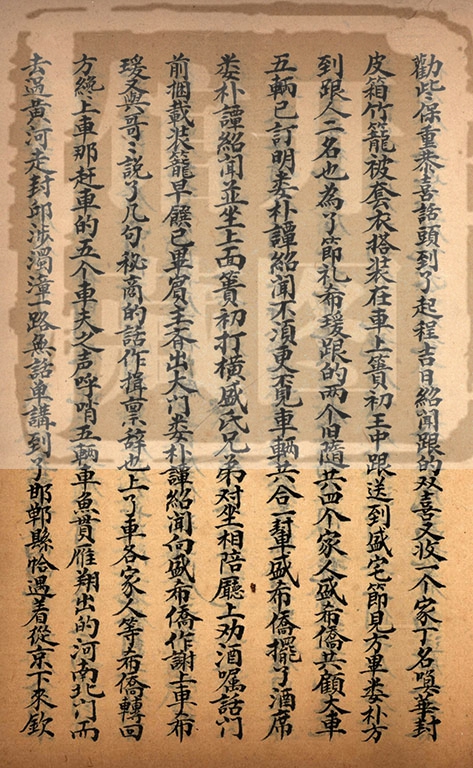 勸些保重恭喜話頭到了起程吉日紹聞跟的双喜又收一个家丁名喚華封
皮箱竹籠被套衣搭裝在車上簣初王中跟送到盛宅節見方畢婁朴方
到跟人二名也為了節礼布瑗跟的兩个旧隨共四个家人盛希僑共顧大車
五輌已訂明婁朴譚紹聞不須更覓車輌共合一幫盛布僑擺了酒席
婁朴譚紹聞並坐上面簣初打横盛氏兄弟对坐相陪廳上劝酒嘱話門
前捆載裝籠早饌已畢賓主眷出大門婁朴譚紹聞向盛布僑作謝上車布
瑗又與哥々說了几句秘商的話作揖禀辞也上了車各家人等希僑轉回
方纔上車那赶車的五个車夫之声呼哨五輌車魚貫雁翔出的河南北門而
去過黃河走封邱涉濁漳一路魚話单講到了邯鄲縣恰遇着從京下來欽